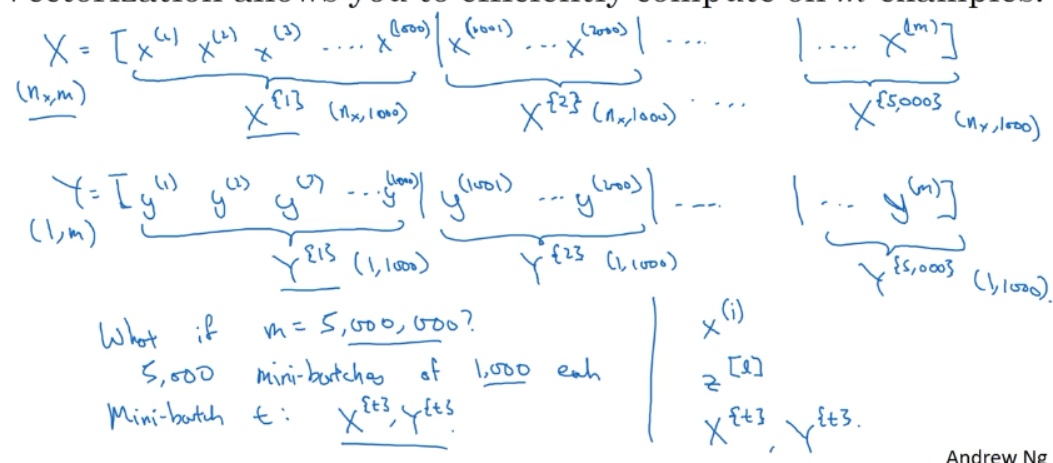 vectorization allows you to efficiently compute on m examples.
X = [x^(1) x^(2) x^(3) .... x^(1000) | x^(1001) ... x^(2000) | .... | .... x^(m)]
(n_x, m) X^{1} (n_x, 1000) X^{2} (n_x, 1000) .... X^{5,000} (n_x, 1000)
Y = [y^(1) y^(2) y^(3) ... y^(1000) | y^(1001) ... y^(200) | .... | ... y^(m)]
(1, m) Y^{1} (1, 1000) Y^{2} (1, 1000) Y^{5,000} (1, 1000).
What if m = 5,000,000?
5,000 mini-batches of 1,000 each
Mini-batch t: X^{t}, Y^{t}.
x^(i)
z^[l]
X^{t}, Y^{t}.
Andrew Ng